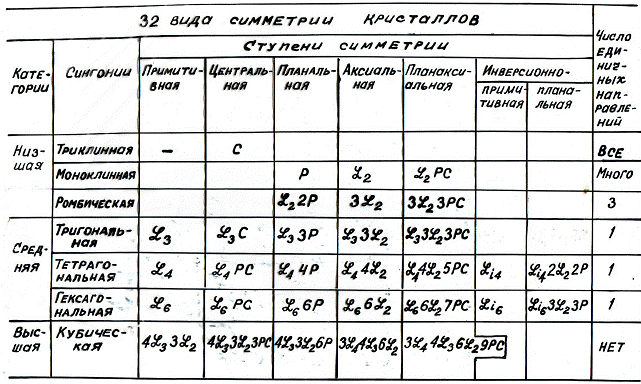 32 вида симметрии кристаллов
Категории
Сингонии
Ступени симметрии
Число единичных направлений
Примитивная
Центральная
Планальная
Аксиальная
Планаксиальная
Инверсионно-
примитивная
планальная
Низшая
Триклинная – C ВСЕ
Моноклинная P L₂ L₂PC Много
Ромбическая L₂2P 3L₂ 3L₂3PC 3
Средняя
Тригональная L₃ L₃C L₃3P L₃3L₂ L₃3L₂3PC 1
Тетрагональная L₄ L₄PC L₄4P L₄4L₂ L₄4L₂5PC Li₄ Li₄2L₂2P 1
Гексагональная L₆ L₆PC L₆6P L₆6L₂ L₆6L₂7PC Li₆ Li₆3L₂3P 1
Высшая
Кубическая 4L₃3L₂ 4L₃3L₂3PC 4L₃3L₂6P 3L₄4L₃6L₂ 3L₄4L₃6L₂9PC НЕТ